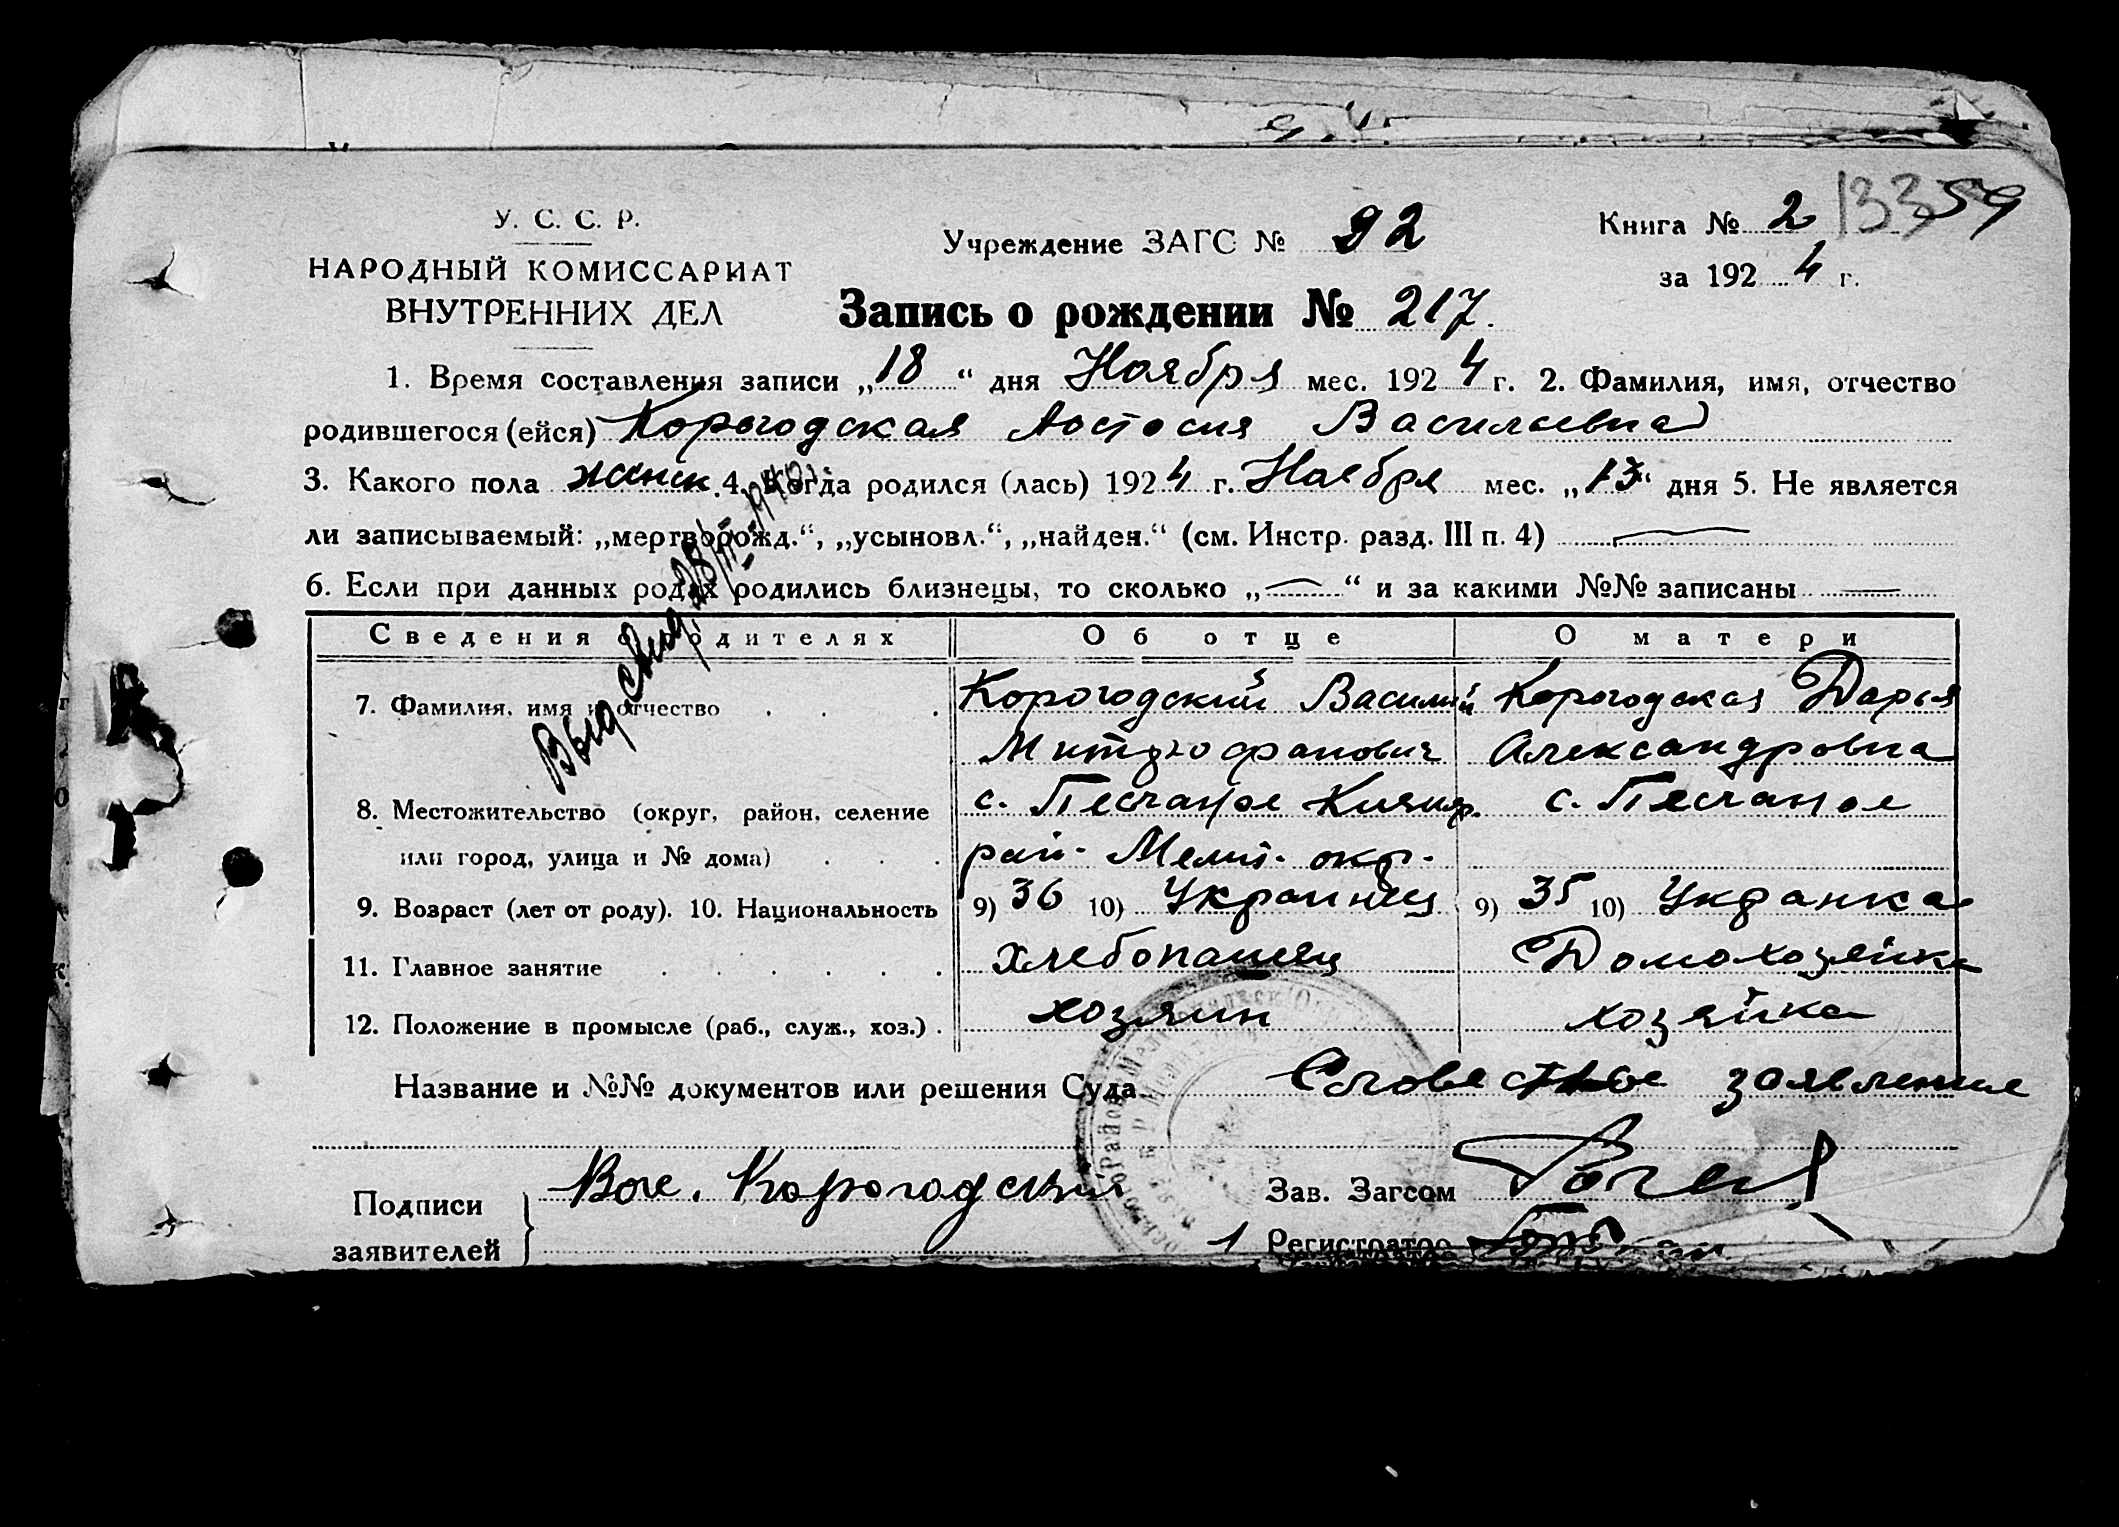 У. С. С. Р.
НАРОДНЫЙ КОМИССАРИАТ
ВНУТРЕННИХ ДЕЛ
Учреждение ЗАГС № 92
Книга № 2 133 59
за 1924 г.
Запись о рождении № 217.
1. Время составления записи „18“ дня Ноября мес. 1924 г. 2. Фамилия, имя, отчество
родившегося (ейся) Корогодская Василевна
3. Какого пола женск. 4. Когда родился (лась) 1924 г. Ноября мес. „13“ дня 5. Не является
ли записываемый: „мертворожд.“, „усыновл.“, „найден.“ (см. Инстр. разд. III п. 4)
6. Если при данных родах родились близнецы, то сколько „—“ и за какими №№ записаны —
Сведения о родителях Об отце О матери
7. Фамилия, имя и отчество . . . Корогодский Василий Корогодская Дарья
Александровна
8. Местожительство (округ, район, селение с. Песчаное с. Песчаное
или город, улица и № дома) . . . рай. Мелит. окр.
9. Возраст (лет от роду). 10. Национальность 9) 36 10) Украинец 9) 35 10) Укранка
11. Главное занятие . . . . . . Хлебопашец Домохозяйка
12. Положение в промысле (раб., служ., хоз.) . хозяин хозяйка
Название и №№ документов или решения Суда Словесное заявление
Подписи
заявителей
Вас. Корогодский
Зав. Загсом
1 Регистратор
Выд свид 28/VI-1940г.